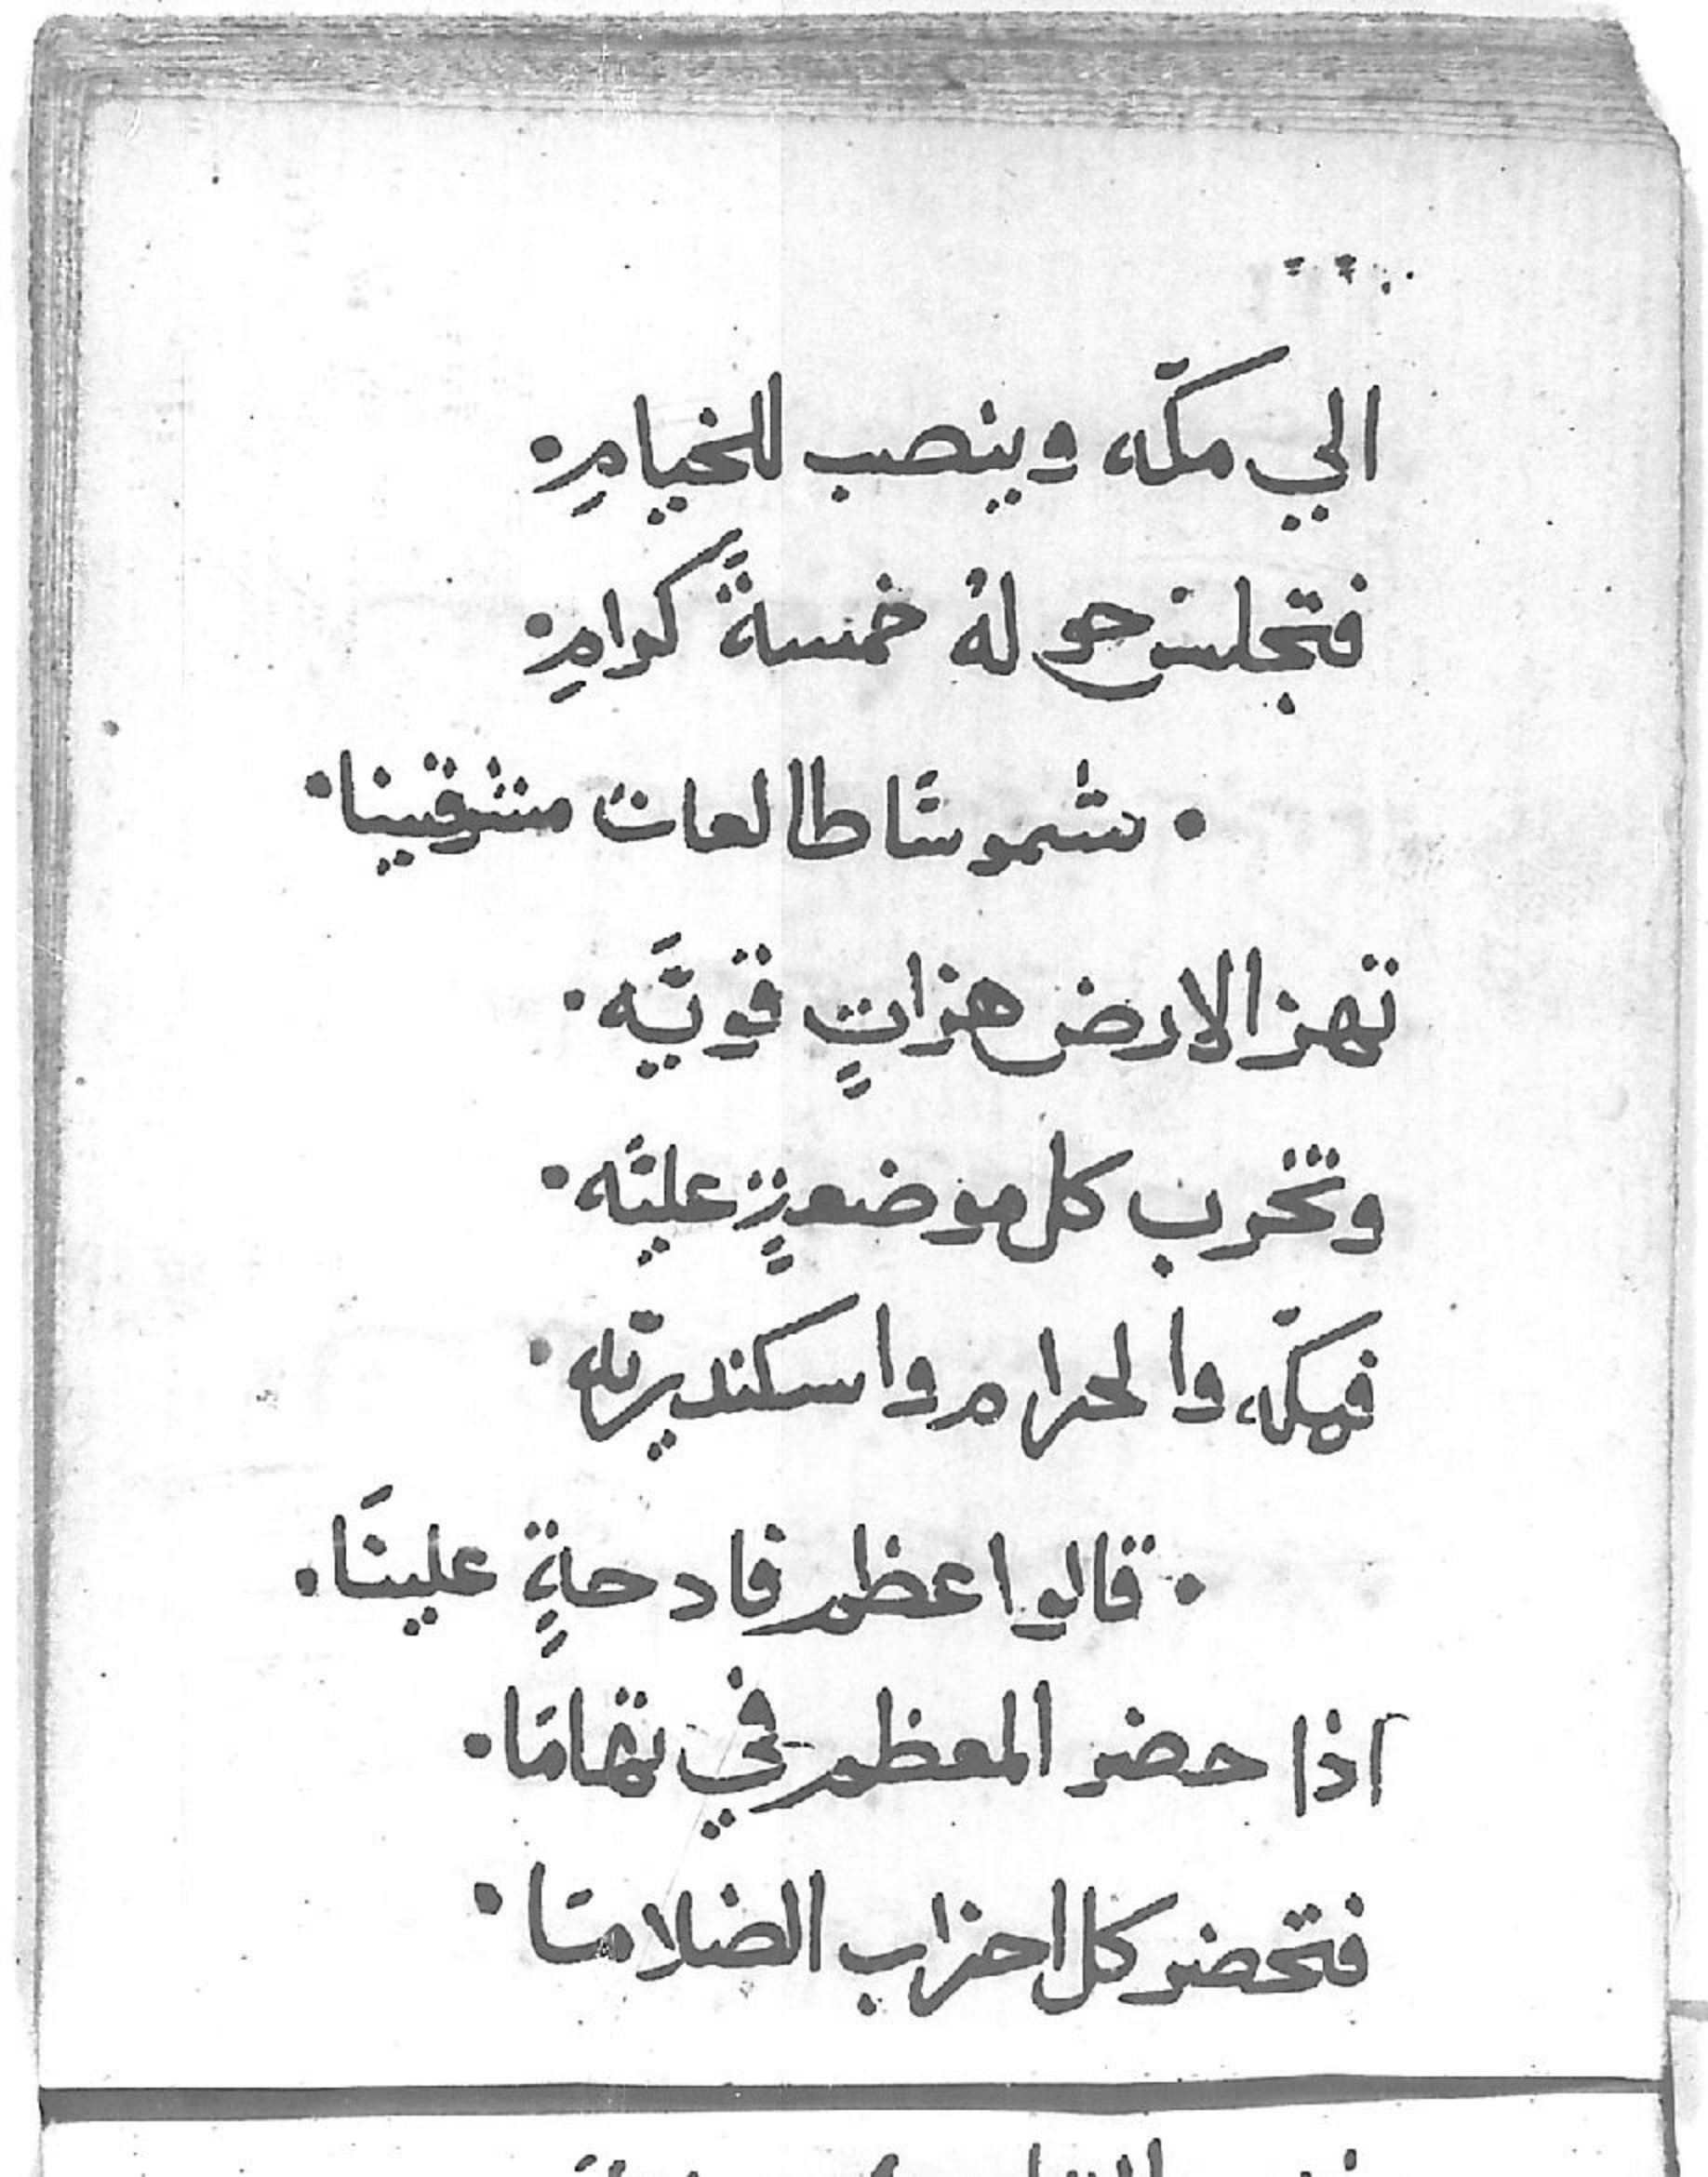 الي مكّه وينصب للخيامِ.
فتجلس حو لهُ خمسةً كرامِ.
. شموسًا طالعات مشرقينا.
تهز الارض هزاتٍ قويَّه.
وتخرب كل موضعةٍ عليَّه.
فمكّه والحرام واسكنديريّه.
. قالوا عظم فادحةٍ علينَا.
اذا حضر المعظم في تهامَا.
فتحضر كل احزاب الضلامَا.